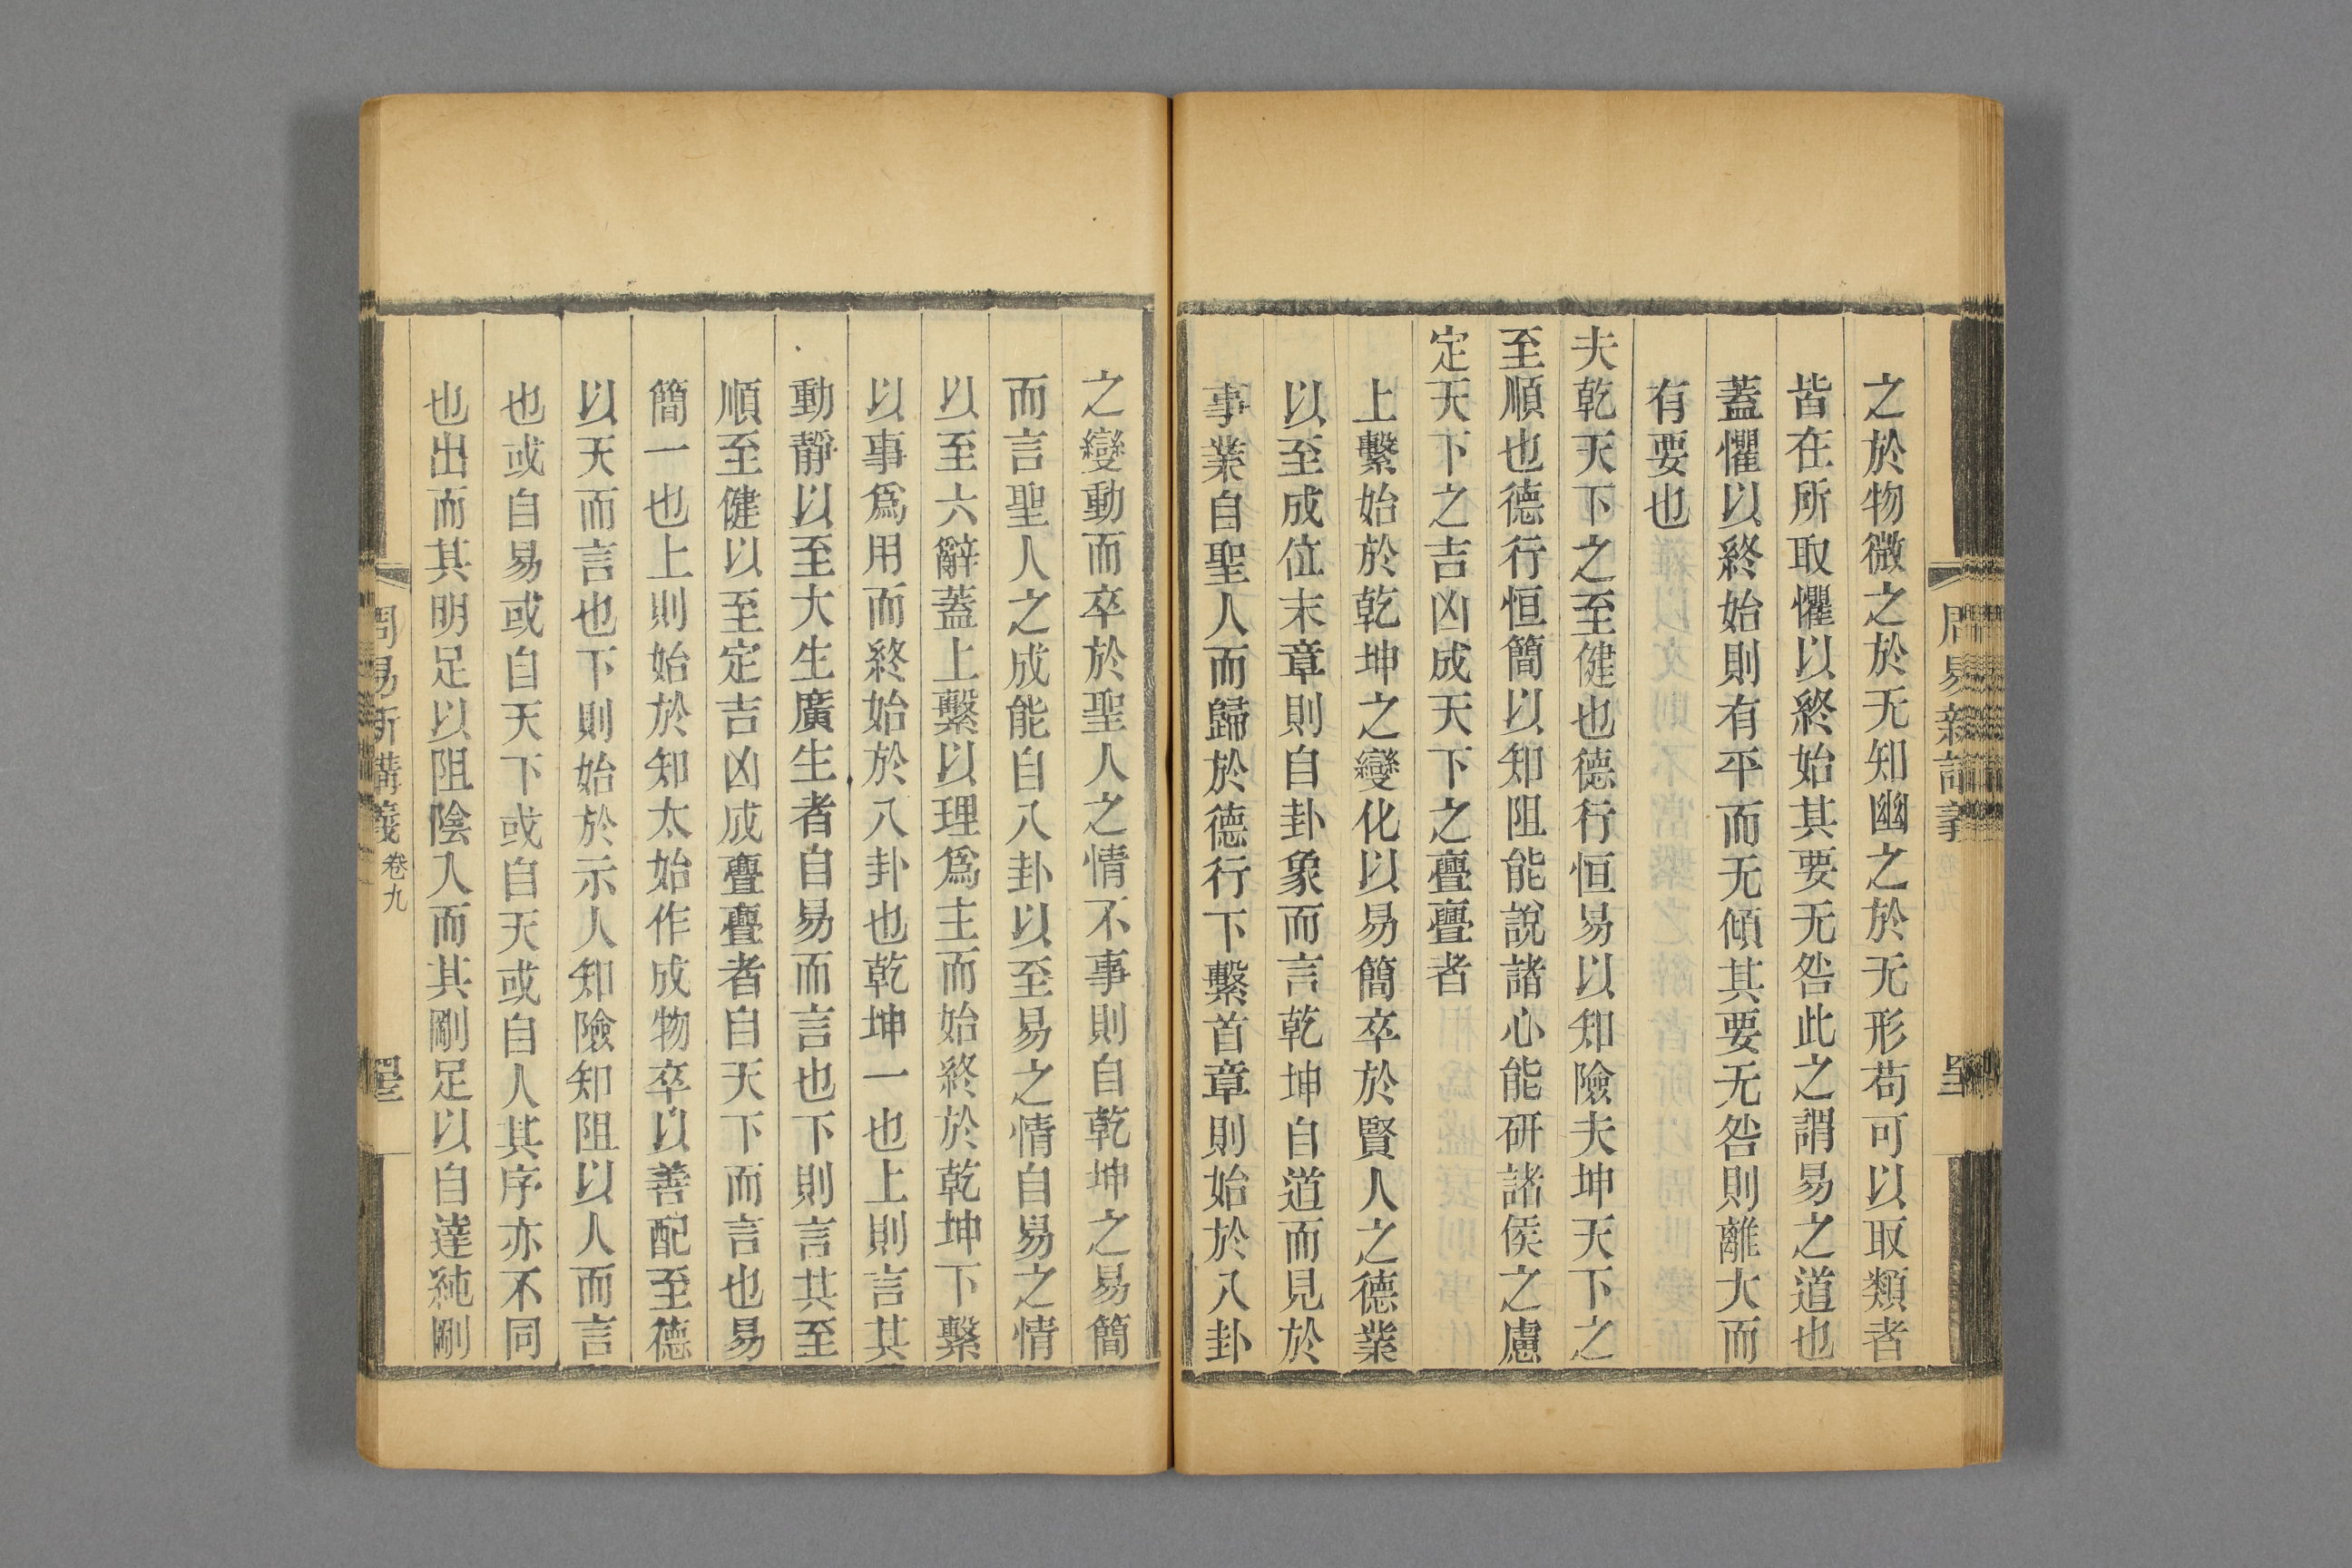 之於物微之於无知幽之於无形苟可以取類者
皆在所取懼以終始其要无咎此之謂易之道也
蓋懼以終始則有平而无傾其要无咎則離大而
有要也
夫乾天下之至健也德行恒易以知險夫坤天下之
至順也德行恒簡以知阻能說諸心能研諸侯之慮
定天下之吉凶成天下之亹亹者
上繫始於乾坤之變化以易簡卒於賢人之德業
以至成位末章則自卦象而言乾坤自道而見於
事業自聖人而歸於德行下繫首章則始於八卦
之變動而卒於聖人之情不事則自乾坤之易簡
而言聖人之成能自八卦以至易之情自易之情
以至六辭蓋上繫以理爲主而始終於乾坤下繫
以事爲用而終始於八卦也乾坤一也上則言其
動靜以至大生廣生者自易而言也下則言其至
順至健以至定吉凶成亹亹者自天下而言也易
簡一也上則始於知太始作成物卒以善配至德
以天而言也下則始於示人知險知阻以人而言
也或自易或自天下或自天或自人其序亦不同
也出而其明足以阻陰入而其剛足以自達純剛
周易新講義 卷九